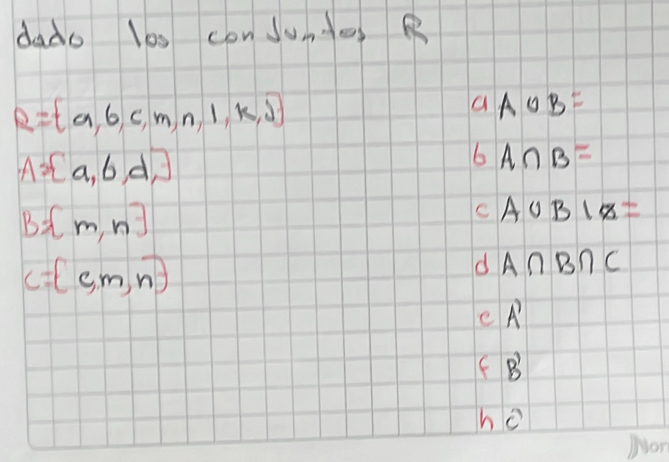 dado los conjuntos R
R={a,b,c,m,n,l,k,j}
A={a,b,d,}
B={m,n}
C={c,m,n}
a A∪B=
b A∩B=
c A∪B\
d A∩B∩C
e A'
f B'
h C'